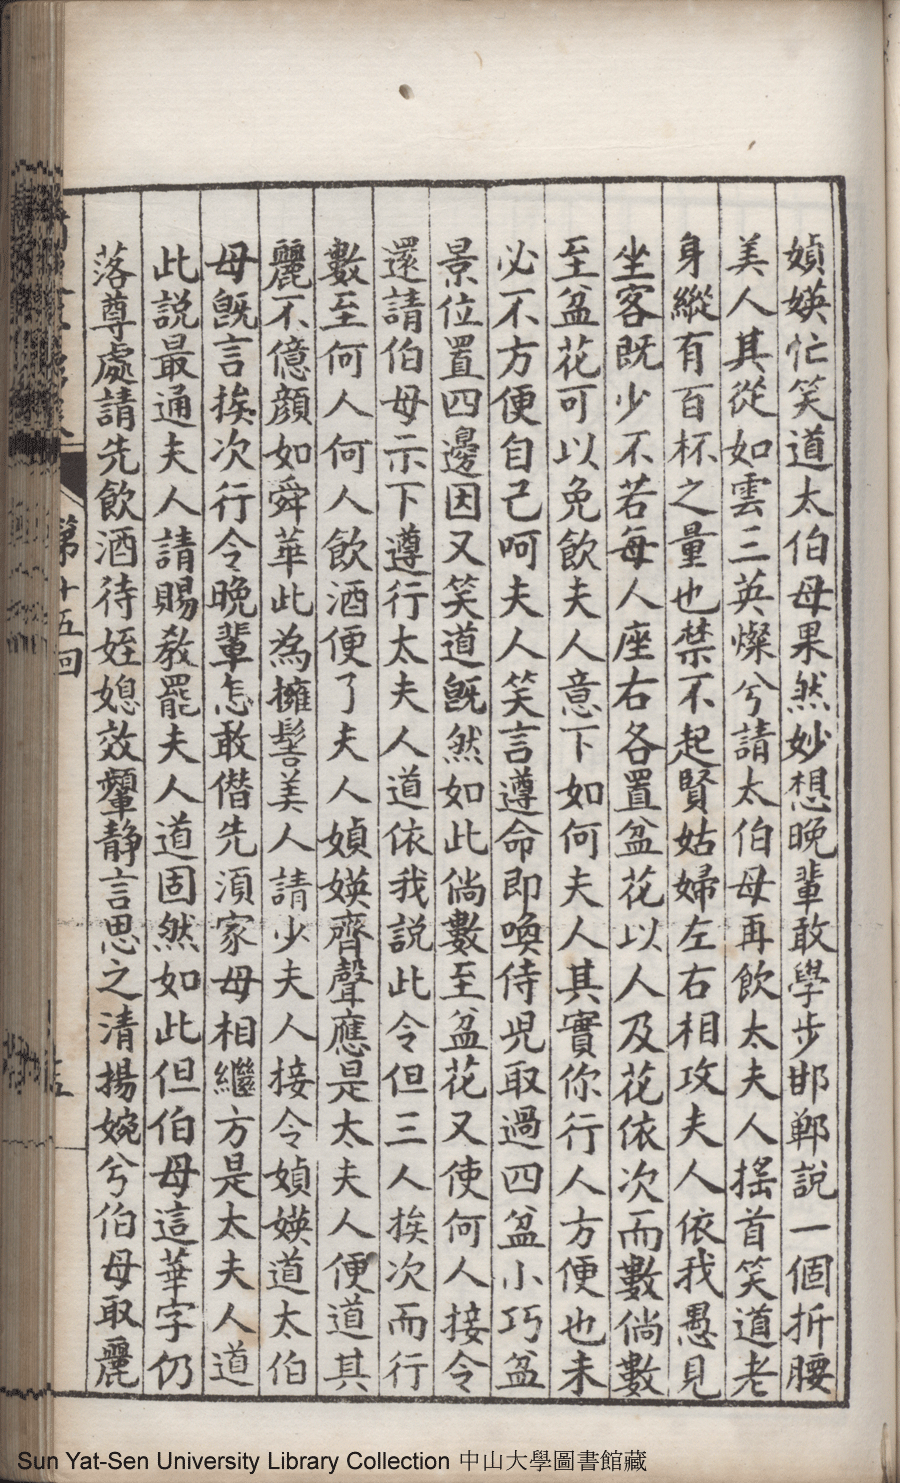 媜媖忙笑道太伯母果然妙想晚輩敢學步邯鄲說一個折腰
美人其從如雲三英燦兮請太伯母再飲太夫人搖首笑道老
身縱有百杯之量也禁不起賢姑婦左右相攻夫人依我愚見
坐客既少不若每人座右各置盆花以人及花依次而數倘數
至盆花可以免飲夫人意下如何夫人其實你行人方便也未
必不方便自己呵夫人笑言遵命即喚侍兒取過四盆小巧盆
景位置四邊因又笑道既然如此倘數至盆花又使何人接令
還請伯母示下遵行太夫人道依我說此令但三人挨次而行
數至何人何人飲酒便了夫人媜媖齊聲應是太夫人便道其
麗不億顏如舜華此為擁髻美人請少夫人接令媜媖道太伯
母既言挨次行令晚輩怎敢僭先須家母相繼方是太夫人道
此說最通夫人請賜教罷夫人道固然如此但伯母這華字仍
落尊處請先飲酒待姪媳效顰靜言思之清揚婉兮伯母取麗
第十五回
Sun Yat-Sen University Library Collection 中山大學圖書館藏